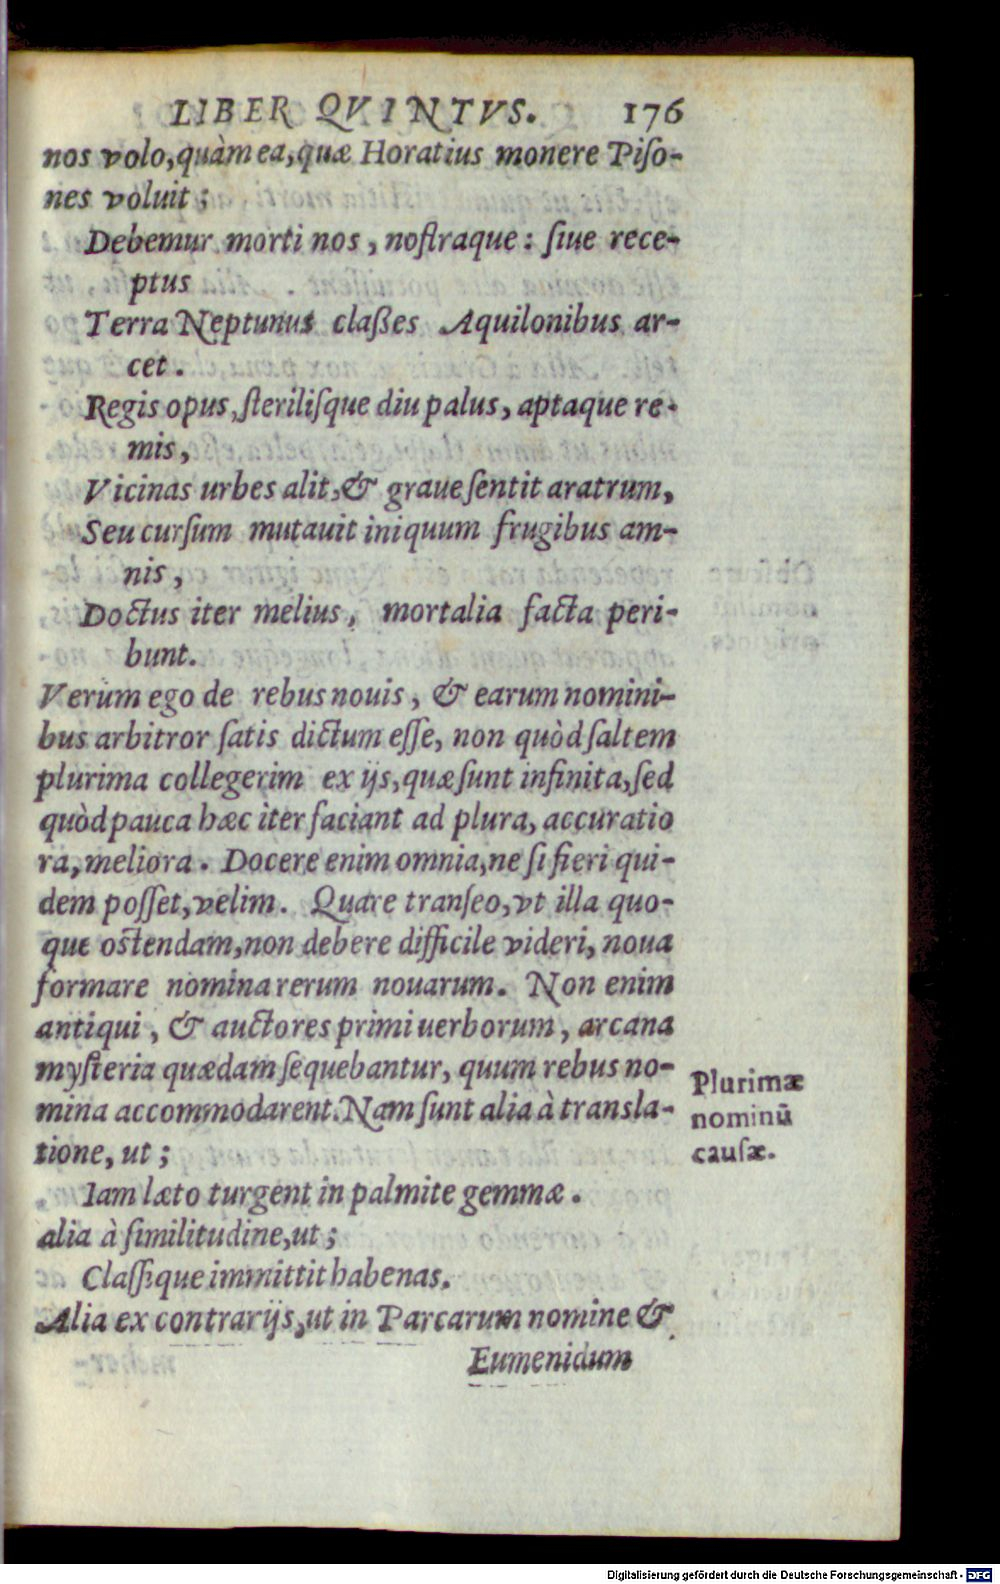 LIBER QVINTVS. 176
nos volo, quàm ea, quæ Horatius monere Piſo-
nes voluit;
Debemur morti nos, noſtraque: ſiue rece-
ptus
Terra Neptunus claßes Aquilonibus ar-
cet.
Regis opus, ſterilisque diu palus, aptaque re-
mis,
Vicinas urbes alit, & graue ſentit aratrum,
Seu curſum mutauit iniquum frugibus am-
nis,
Doctus iter melius, mortalia facta peri-
bunt.
Verùm ego de rebus nouis, & earum nomini-
bus arbitror ſatis dictum eſſe, non quòd ſaltem
plurima collegerim ex ijs, quæ ſunt infinita, ſed
quòd pauca hæc iter faciant ad plura, accuratio
ra, meliora. Docere enim omnia, ne ſi fieri qui-
dem poſſet, velim. Quare tranſeo, vt illa quo-
que oſtendam, non debere difficile videri, noua
formare nomina rerum nouarum. Non enim
antiqui, & auctores primi uerborum, arcana
myſteria quædam ſequebantur, quum rebus no-
mina accommodarent. Nam ſunt alia à transla-
tione, ut;
Iam læto turgent in palmite gemmæ.
alia à ſimilitudine, ut;
Claſſique immittit habenas.
Alia ex contrarijs, ut in Parcarum nomine &
Eumenidum
Plurimæ
nominū
cauſæ.
Digitalisierung gefördert durch die Deutsche Forschungsgemeinschaft - DFG